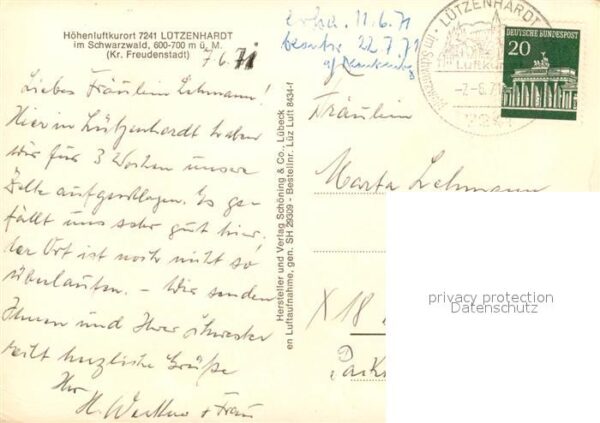 Höhenluftkurort 7241 LÜTZENHARDT
im Schwarzwald, 600-700 m ü. M.
(Kr. Freudenstadt)
7.6.71
Liebes Fräulein Lehmann!
Hier in Lützenhardt haben
wir für 3 Wochen unsere
Zelte aufgeschlagen. Es ge-
fällt uns sehr gut hier,
der Ort ist noch nicht so
überlaufen. – Wir senden
Ihnen und Ihrer Schwester
recht herzliche Grüße
Ihr
H. + Frau
Hersteller und Verlag Schöning & Co., Lübeck
en Luftaufnahme, gen. SH 29309 - Bestellnr. Lüz Luft 8434-f
erha. 11.6.71
beantw. 22.7.71
LÜTZENHARDT
Luftkur
-7.-6.71
7241
DEUTSCHE BUNDESPOST
20
Fräulein
Marta Lehmann
X 18
privacy protection
Datenschutz